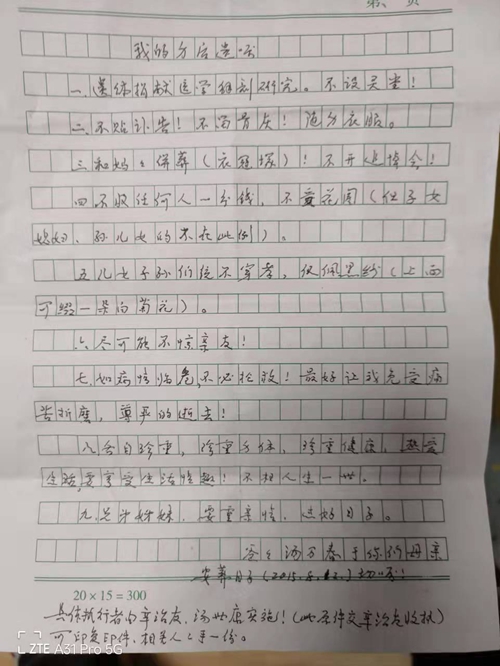 我的身后遗嘱
一、遗体捐献医学细剖研究。不设灵堂！
二、不贴讣告！不留骨灰！随身衣服。
三和妈妈併葬（衣冠塚）！不开追悼会！
四不收任何人一分钱，不要花圈（但子女
媳妇、孙儿女的不在此例）。
五儿女子孙们统不穿孝，仅佩黑纱（上面
可缀一朵白菊花）。
六尽可能不惊亲友！
七如病情临危，不必抢救！最好让我免受病
苦折磨，尊严的逝去！
八各自珍重，珍重身体，珍重健康，热爱
生活，要享受生活情趣！不枉人生一世。
九兄弟姊妹，要重亲情，过好日子。
爸爸汤万春于你们母亲
安葬日子（2015.5.12.）切切！
20×15=300
具体执行者由辛治友，汤世康实施！（此原件交辛治友收执）
可印复印件，相关人々手一份。
ZTE A31 Pro 5G